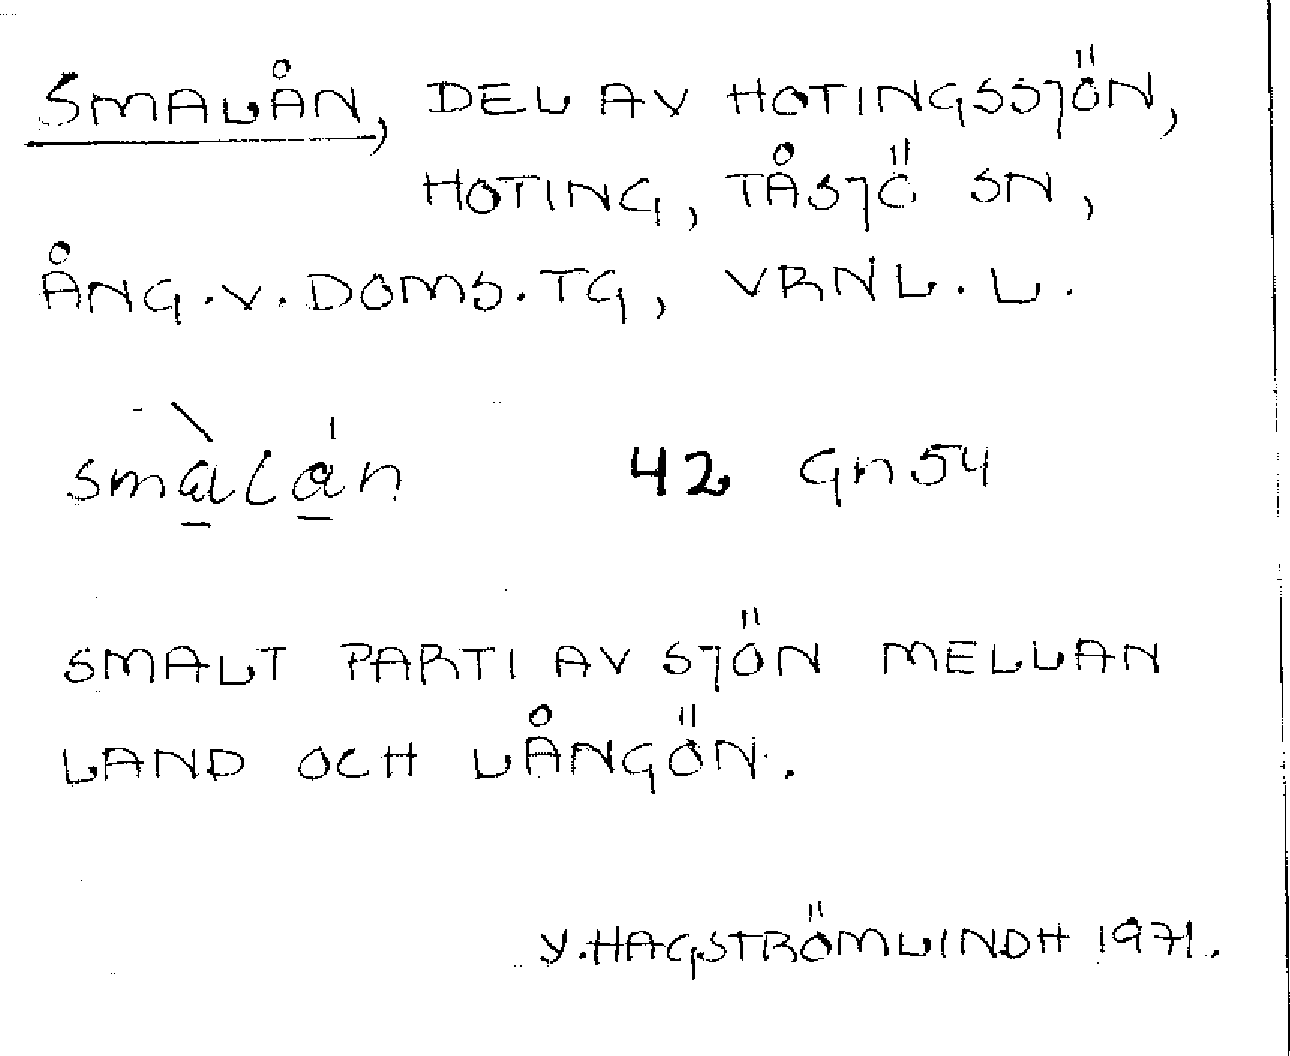 SMALÅN, DEL AV HOTINGSSJÖN,
HOTING, TÅSJÖ SN,
ÅNG.V.DOMS.TG, VRNL.L.
smàlán 42 Gn54
SMALT PARTI AV SJÖN MELLAN
LAND OCH LÅNGÖN.
Y.HAGSTRÖMLINDH 1971.